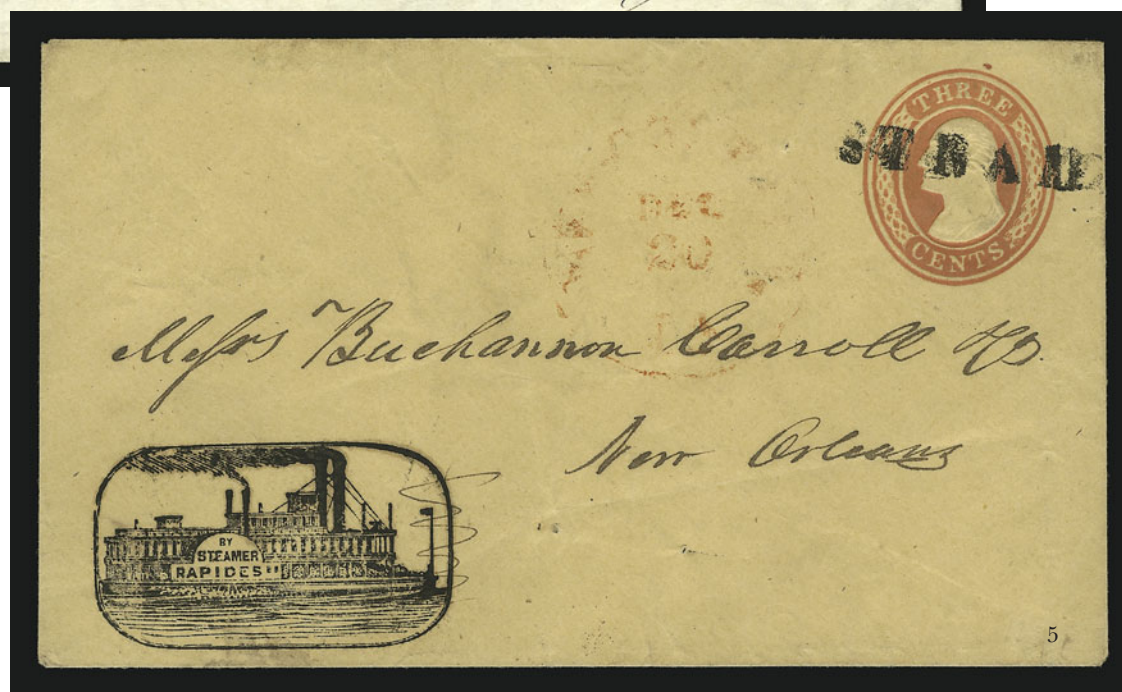 THREE
CENTS
STEAM
20
Messrs Buchannon Carroll & Co.
New Orleans
BY
STEAMER
RAPIDES
5